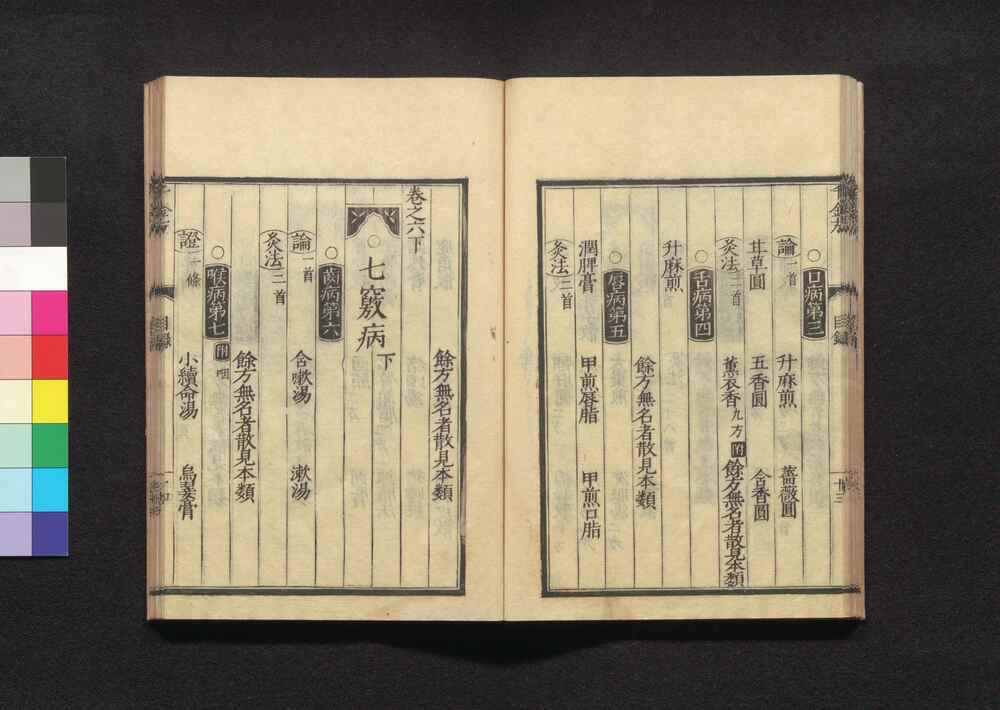 口病第三
論一首 升麻煎 薔薇圓
甘草圓 五香圓 含香圓
灸法二首 薰衣香九方附 餘方無名者散見本類
舌病第四
升麻煎
餘方無名者散見本類
唇病第五
潤脾膏 甲煎唇脂 甲煎口脂
灸法二首
餘方無名者散見本類
卷之六下
七竅病下
齒病第六
論一首 含嗽湯 漱湯
灸法二首
餘方無名者散見本類
喉病第七附咽
證一條 小續命湯 烏翣膏